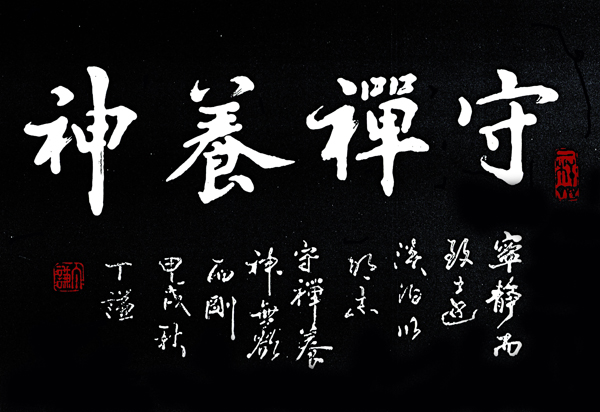 守禪養神
寧靜而
致遠
淡泊以
明志
守禪養
神無欲
而剛
甲戌秋
丁謙